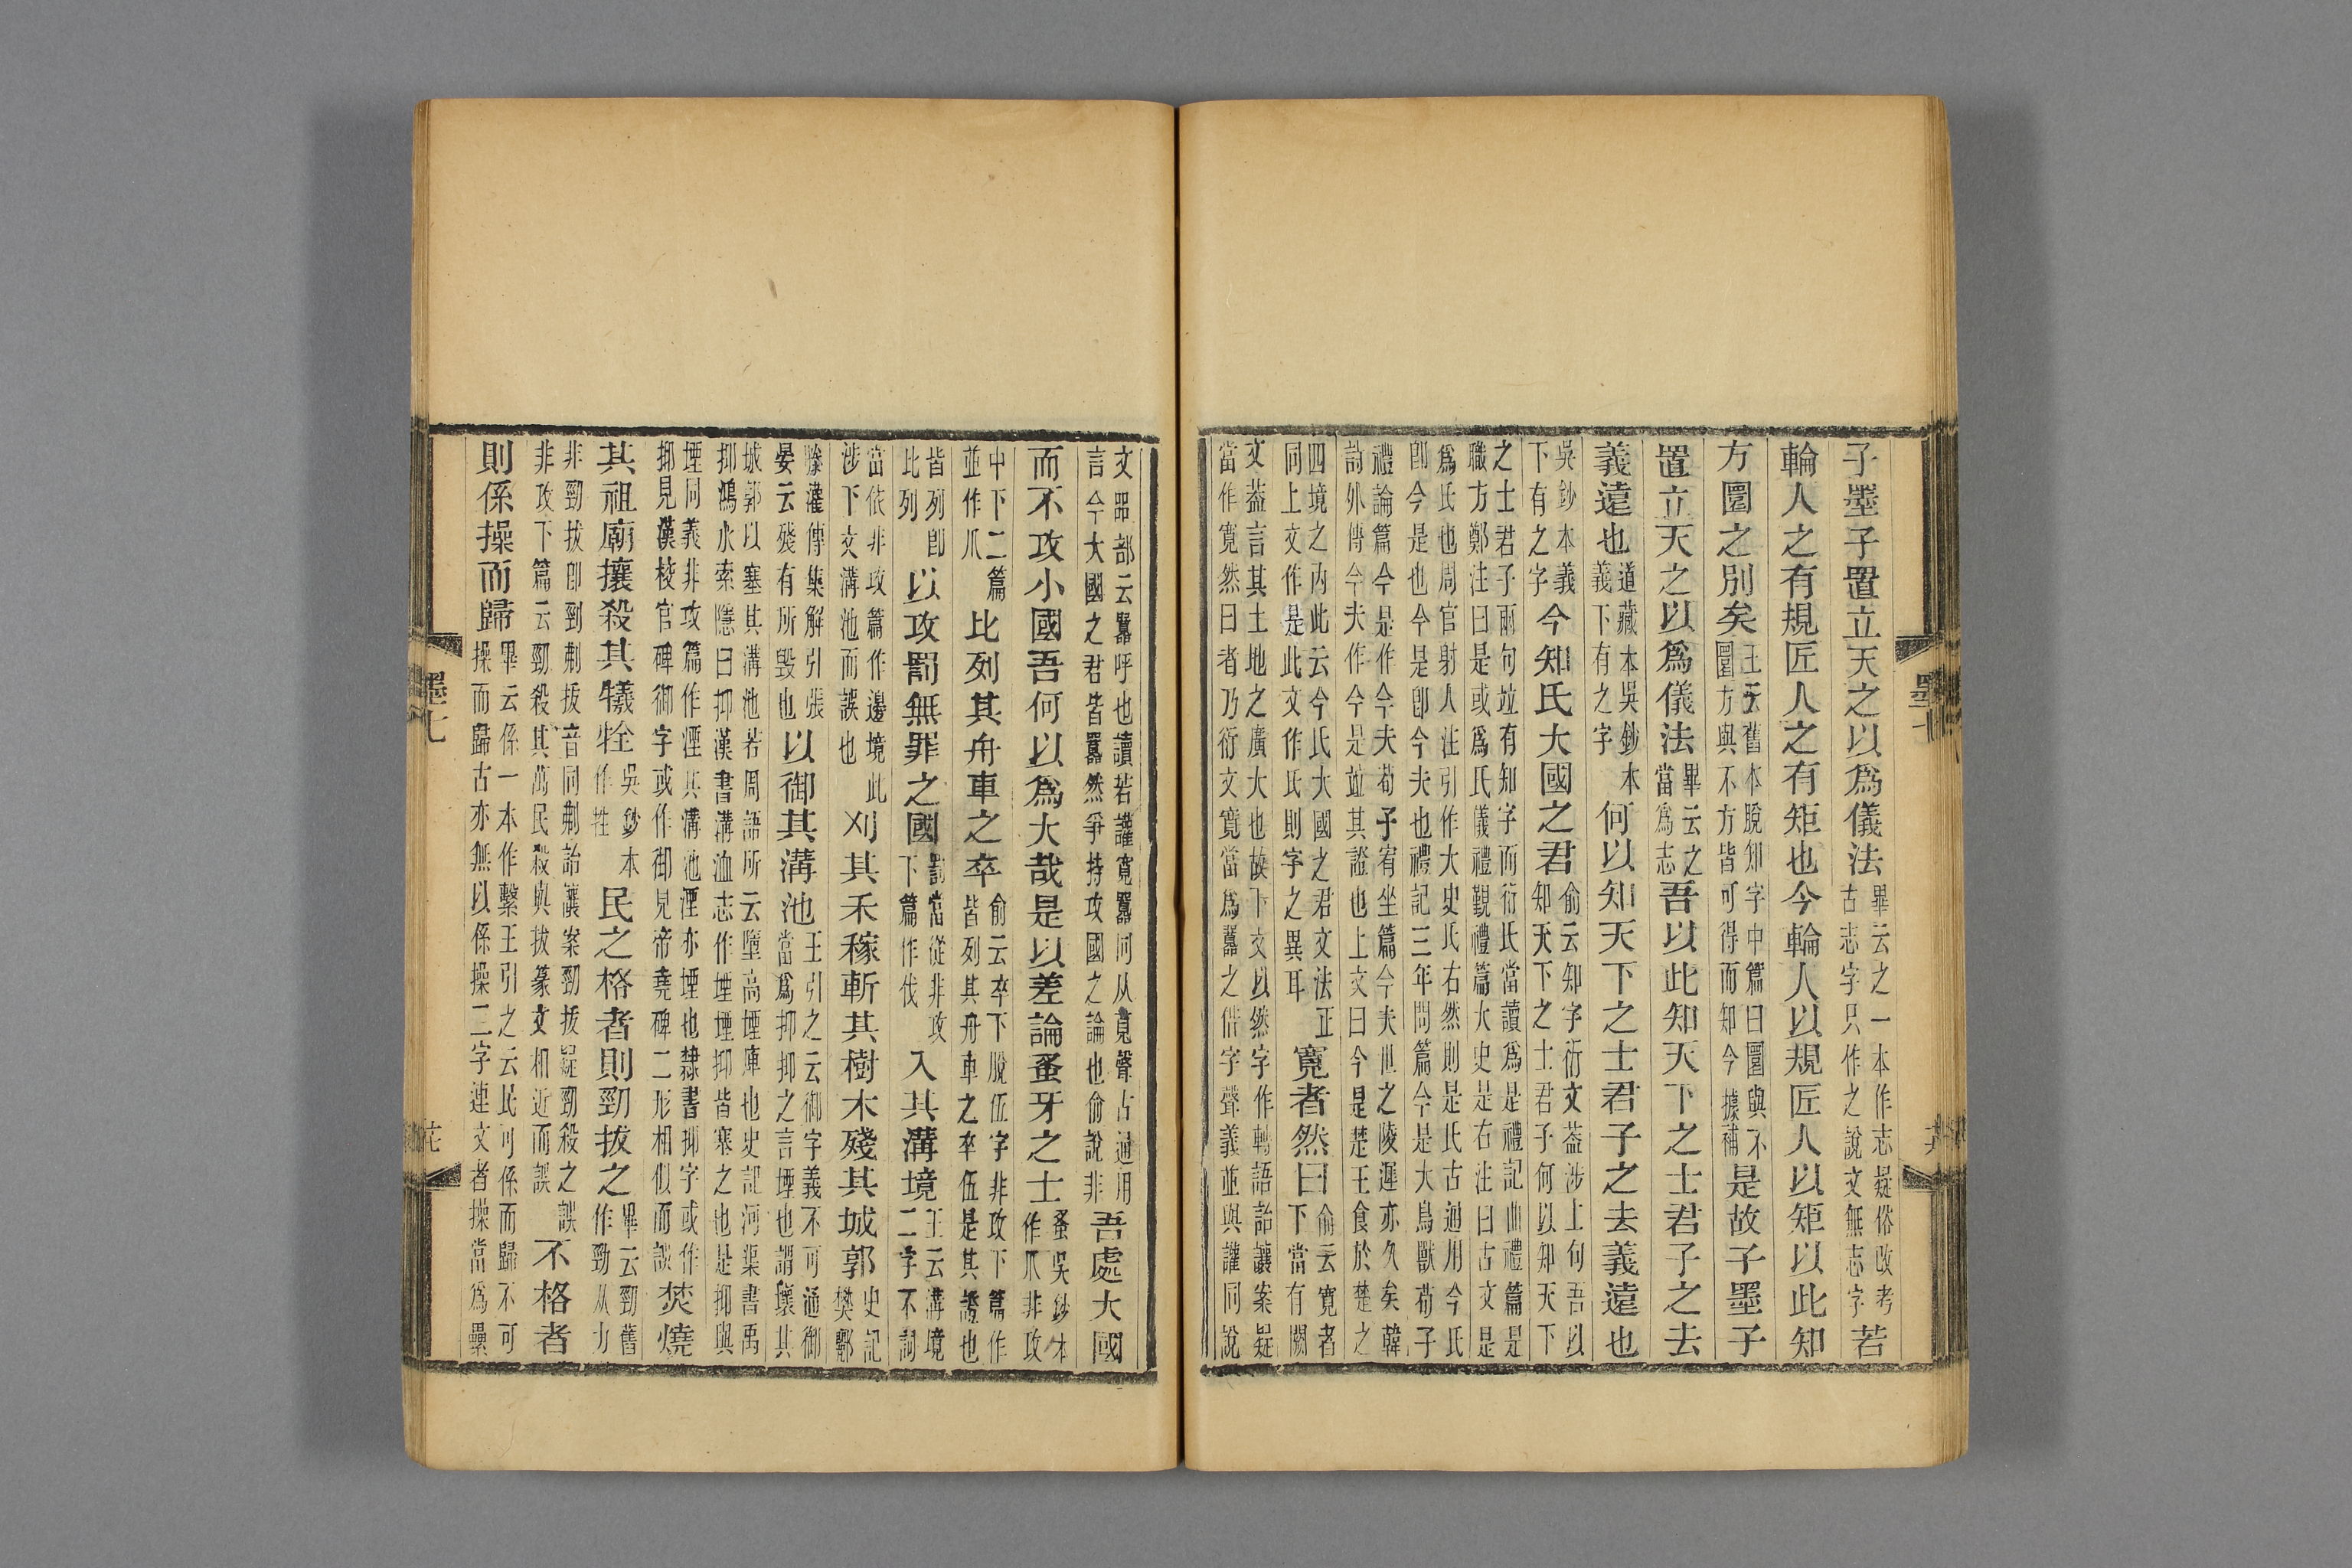 子墨子置立天之以爲儀法畢云之一本作志疑俗改考古志字只作之說文無志字若
輪人之有規匠人之有矩也今輪人以規匠人以矩以此知
方圜之別矣王云舊本脫知字中篇曰圜與不圜方與不方皆可得而知今據補是故子墨子
置立天之以爲儀法畢云之當爲志吾以此知天下之士君子之去
義遠也道藏本吳鈔本義下有之字何以知天下之士君子之去義遠也
吳鈔本義下有之字今知氏大國之君俞云知字衍文蓋涉上句吾以知天下之士君子何以知天下
之士君子兩句竝有知字而衍氏當讀爲是禮記曲禮篇是職方鄭注曰是或爲氏儀禮覲禮篇大史是右注曰古文是
爲氏也周官射人注引作大史氏右然則是氏古通用今氏卽今是也今是卽今夫也禮記三年問篇今是大鳥獸荀子
禮論篇今是作今夫荀子宥坐篇今夫世之陵遲亦久矣韓詩外傳今夫作今是竝其證也上文曰今是楚王食於楚之
四境之內此云今氏大國之君文法正同上文作是此文作氏則字之異耳寬者然曰俞云寬者下當有闕
文蓋言其土地之廣大也故下文以然字作轉語詒讓案疑當作寬然曰者乃衍文寬當爲嚻之借字聲義並與讙同說
文㗊部云嚻呼也讀若讙寬嚻同从莧聲古通用言今大國之君皆嚻然爭持攻國之論也俞說非吾處大國
而不攻小國吾何以爲大哉是以差論蚤牙之士蚤吳鈔本作爪非攻
中下二篇並作爪比列其舟車之卒俞云卒下脫伍字非攻下篇作皆列其舟車之卒伍是其證也
皆列卽比列以攻罰無罪之國罰當從非攻下篇作伐入其溝境王云溝境二字不詞
當依非攻篇作邊境此涉下文溝池而誤也刈其禾稼斬其樹木殘其城郭史記樊酈
滕灌傳集解引張晏云殘有所毀也以御其溝池王引之云御字義不可通御當爲抑抑之言堙也謂壞其
城郭以塞其溝池若周語所云墮高堙庳也史記河渠書禹抑鴻水索隱曰抑漢書溝洫志作堙堙抑皆塞之也是抑與
堙同義非攻篇作湮其溝池湮亦堙也隸書抑字或作抑見漢校官碑御字或作御見帝堯碑二形相似而誤焚燒
其祖廟攘殺其犧牷吳鈔本作牲民之格者則勁拔之畢云勁舊作勁从力
非勁拔卽剄刜拔音同刜詒讓案勁拔疑勁殺之誤非攻下篇云勁殺其萬民殺與拔篆文相近而誤不格者
則係操而歸畢云係一本作繫王引之云民可係而歸不可操而歸古亦無以係操二字連文者操當爲纍
墨七